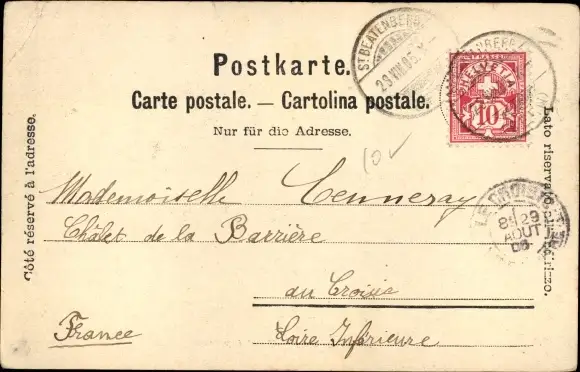 Postkarte.
Carte postale. — Cartolina postale.
Nur für die Adresse.
Côté réservé à l'adresse.
Lato riservato
ST. BEATENBERG
HELVETIA
10
10
Mademoiselle
Châlet de la Barrière
au Croisic
Loire Inférieure
France
LE CROISIC
8E 29
AOUT